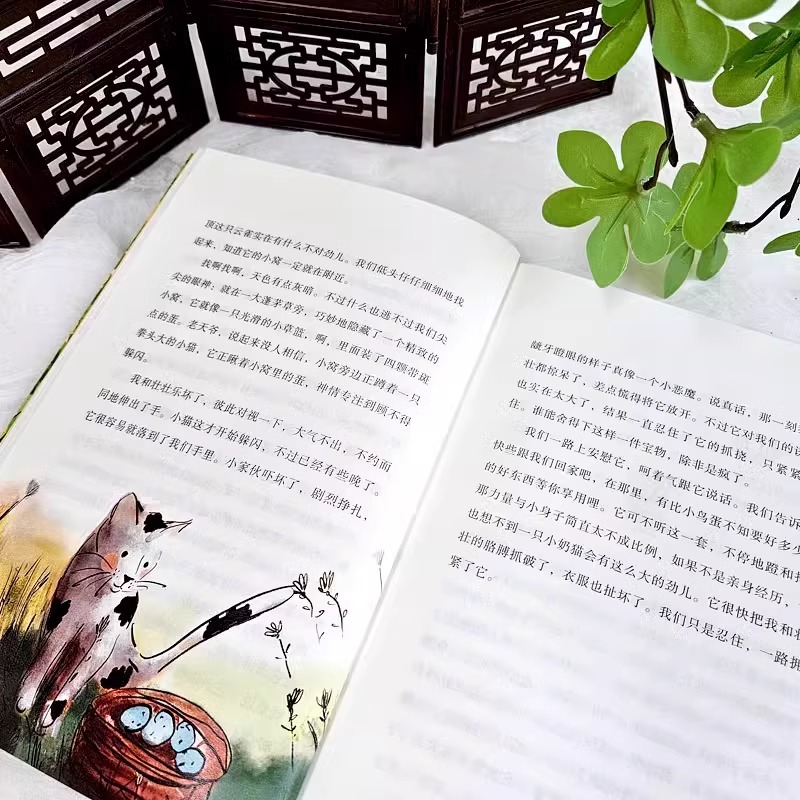 顶这只云雀实在有什么不对劲儿。我们低头仔仔细细地找
起来，知道它的小窝一定就在附近。
找啊找啊，天色有点灰暗。不过什么也逃不过我们尖
尖的眼神：就在一大蓬茅草旁，巧妙地隐藏了一个精致的
小窝，它就像一只光滑的小草篮，啊，里面装了四颗带斑
点的蛋。老天爷，说起来没人相信，小窝旁边正蹲着一只
拳头大的小猫，它正瞅着小窝里的蛋，神情专注到顾不得
躲闪。
我和壮壮乐坏了，彼此对视一下，大气不出，不约而
同地伸出了手。小猫这才开始躲闪，不过已经有些晚了。
它很容易就落到了我们手里。小家伙吓坏了，剧烈挣扎，
龇牙瞪眼的样子真像一个小恶魔。说真话，那一刻
壮都惊呆了，差点慌得将它放开。不过它对我们的
也实在太大了，结果一直忍住了它的抓挠，只紧紧
住。谁能舍得下这样一件宝物，除非是疯了。
我们一路上安慰它，呵着气跟它说话。我们告诉
快些跟我们回家吧，在那里，有比小鸟蛋不知要好多少
的好东西等你享用哩。它可不听这一套，不停地蹬和
那力量与小身子简直太不成比例，如果不是亲身经历，
也想不到一只小奶猫会有这么大的劲儿。它很快把我和
壮的胳膊抓破了，衣服也扯坏了。我们只是忍住，一路拥
紧了它。